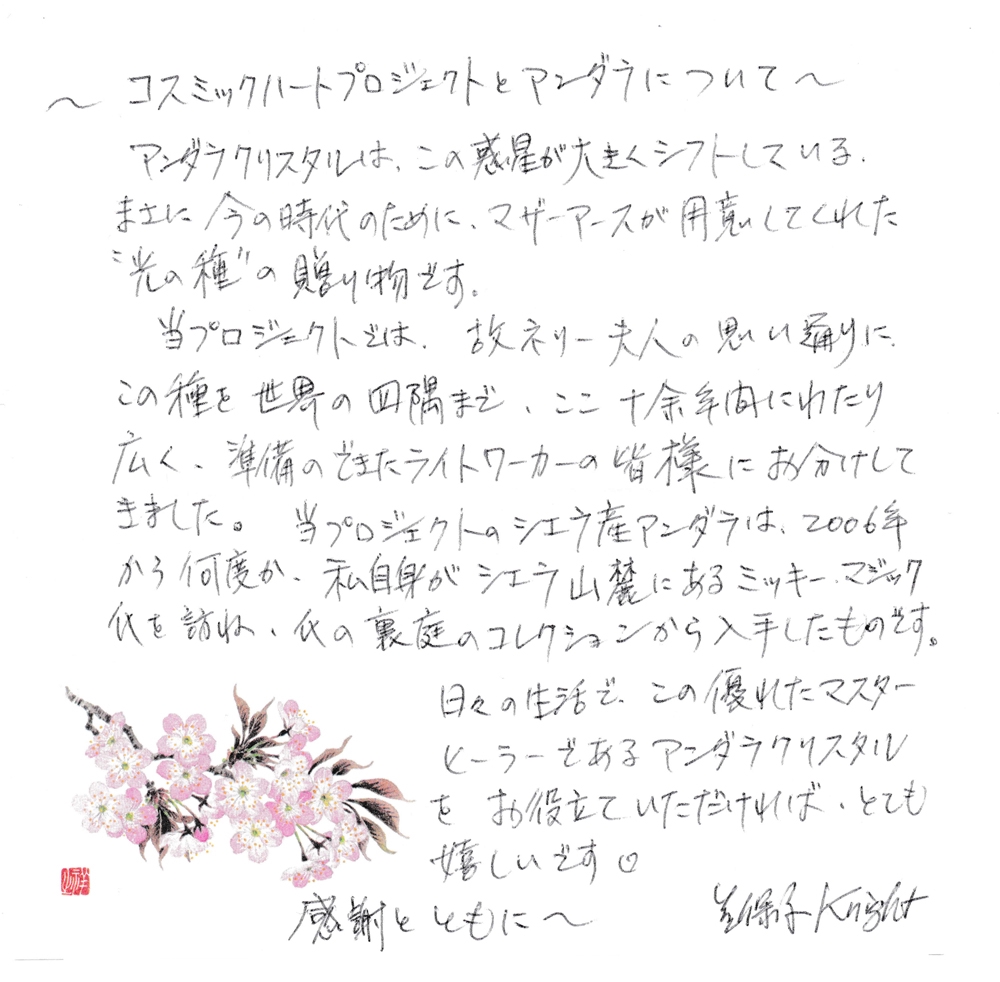 ～ コスミックハートプロジェクトとアンダラについて～
アンダラクリスタルは、この惑星が大きくシフトしている、
まさに今の時代のために、マザーアースが用意してくれた
"光の種"の贈り物です。
当プロジェクトでは、故ネリー夫人の思い通りに、
この種を世界の四隅まで、ここ十余年間にわたり
広く、準備のできたライトワーカーの皆様にお分けして
きました。 当プロジェクトのシエラ産アンダラは、2006年
から何度か、私自身がシエラ山麓にあるミッキー・マジック
氏を訪ね、氏の裏庭のコレクションから入手したものです。
日々の生活で、この優れたマスター
ヒーラーであるアンダラクリスタル
を お役立ていただければ、とても
嬉しいです♡
感謝とともに～
保子 Knight